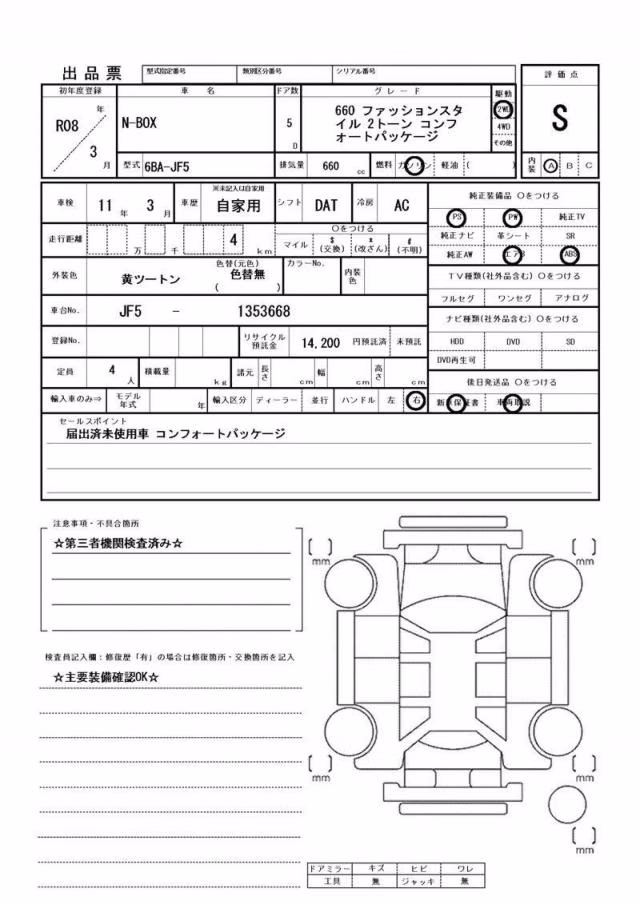 出品票 型式指定番号 類別区分番号 シリアル番号
評価点
初年度登録 車名 ドア数 グレード 駆動
年
R08
3
月
N-BOX
5
D
660 ファッションスタ
イル 2トーン コンフ
ォートパッケージ
2WD
4WD
その他
S
型式 6BA-JF5 排気量 660 cc 燃料 ガソリン 軽油 ( )
内装 A B C
車検 11 年 3 月 車歴 ※未記入は自家用
自家用 シフト DAT 冷房 AC
純正装備品 〇をつける
PS PW 純正TV
純正ナビ 革シート SR
純正AW エアB ABS
走行距離 万 千 4 km
〇をつける
マイル $ (交換) x (改ざん) # (不明)
外装色 黄ツートン 色替(元色)
色替無
( )
カラーNo. 内装色
TV種類(社外品含む) 〇をつける
フルセグ ワンセグ アナログ
車台No. JF5 - 1353668
ナビ種類(社外品含む) 〇をつける
HDD DVD SD
DVD再生可
登録No. リサイクル
預託金 14,200 円預託済 未預託
定員 4 人 積載量 kg 諸元 長さ cm 幅 cm 高さ cm
後日発送品 〇をつける
新車保証書 車両取説
輸入車のみ⇒ モデル
年式 年 輸入区分 ディーラー 並行 ハンドル 左 右
セールスポイント
届出済未使用車 コンフォートパッケージ
注意事項・不具合箇所
☆第三者機関検査済み☆
検査員記入欄：修復歴「有」の場合は修復箇所・交換箇所を記入
☆主要装備確認OK☆
[ ] mm
[ ] mm
[ ] mm
[ ] mm
[ ] mm
ドアミラー キズ ヒビ ワレ
工具 無 ジャッキ 無